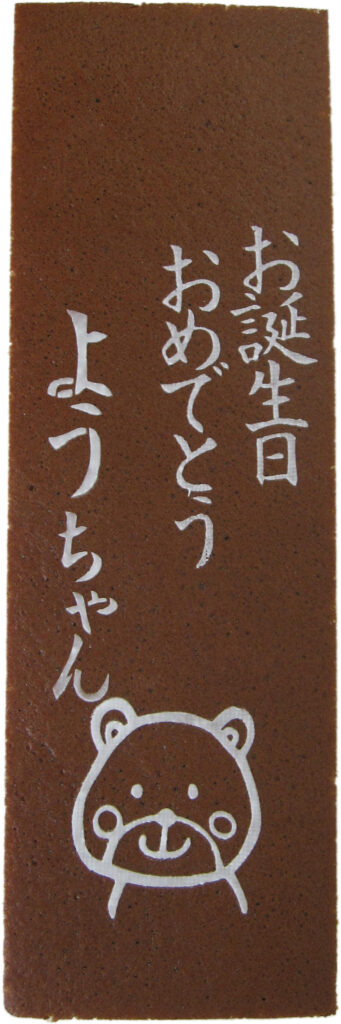 お誕生日
おめでとう
ようちゃん